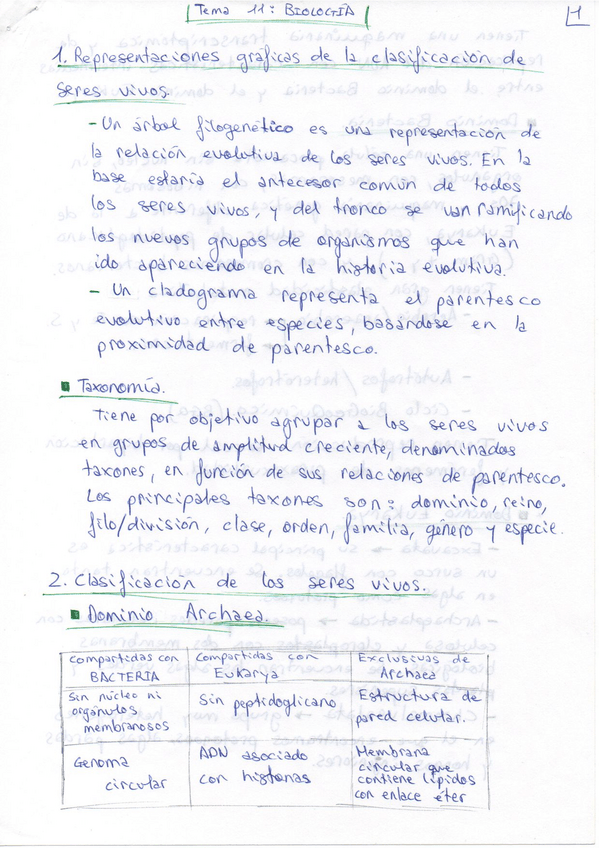 Tema 11: BIOLOGÍA
1
1. Representaciones gráficas de la clasificación de
seres vivos.
- Un árbol filogenético es una representación de
la relación evolutiva de los seres vivos. En la
base estaría el antecesor común de todos
los seres vivos, y del tronco se van ramificando
los nuevos grupos de organismos que han
ido apareciendo en la historia evolutiva.
- Un cladograma representa el parentesco
evolutivo entre especies, basándose en la
proximidad de parentesco.
Taxonomía.
Tiene por objetivo agrupar a los seres vivos
en grupos de amplitud creciente, denominados
taxones, en función de sus relaciones de parentesco.
Los principales taxones son: dominio, reino,
filo/división, clase, orden, familia, género y especie.
2. Clasificación de los seres vivos.
Dominio Archaea.
Compartidas con BACTERIA
Compartidas con Eukarya
Exclusivas de Archaea
Sin núcleo ni orgánulos membranosos
Sin peptidoglicano
Estructura de pared celular.
Genoma circular
ADN asociado con histonas
Membrana circular que contiene lípidos con enlace éter